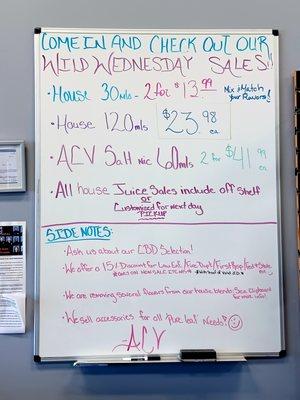 COME IN AND CHECK OUT OUR
WILD WEDNESDAY SALES!!
• House 30mls - 2 for $13.99 Mix & Match
Your Flavors!
• House 120mls $23.98 ea
• ACV Salt Nic 60mls 2 for $41.99 ea
• All house Juice Sales include off Shelf
or
Customized for next day
PICKUP
SIDE NOTES:
• Ask us about our CBD Selection!
• We offer a 15% Discount for Law Enf./Fire Dept/First Resp/
• We are removing several flavors from our house blends. See clipboard
for more info!
• We sell accessories for all Pure leaf Needs!
- ACV